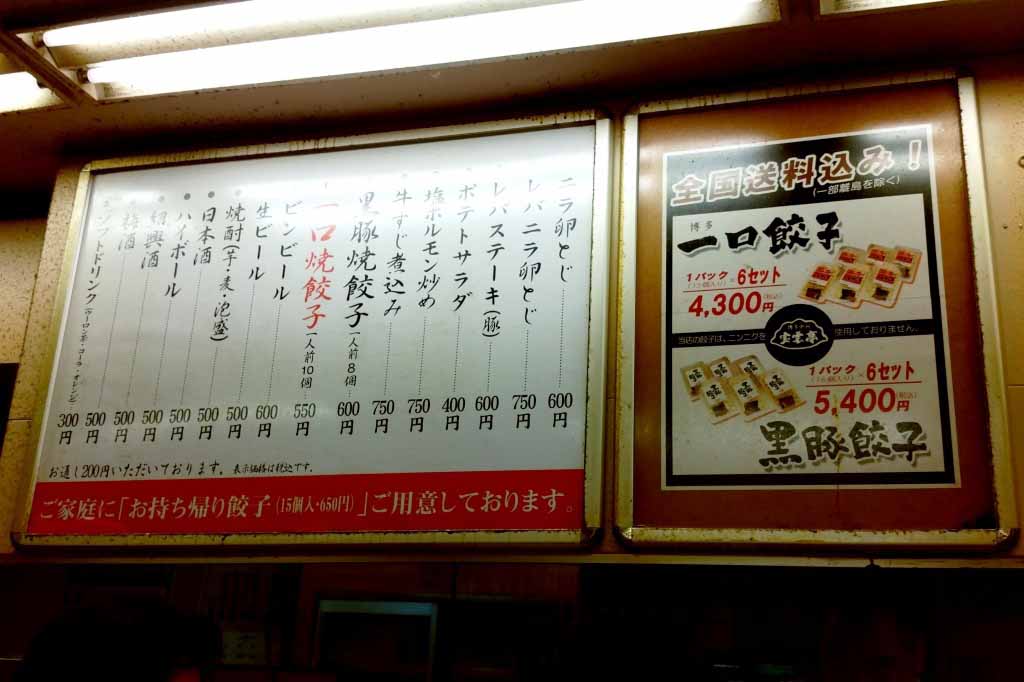 ニラ卵とじ 600円
レバニラ卵とじ 750円
レバステーキ(豚) 600円
ポテトサラダ 400円
塩ホルモン炒め 750円
牛すじ煮込み 750円
黒豚焼餃子 一人前8個 600円
一口焼餃子 一人前10個 550円
ビンビール 600円
生ビール 500円
焼酎(芋・麦・泡盛) 500円
日本酒 500円
ハイボール 500円
紹興酒 500円
梅酒 500円
ソフトドリンク(ウーロン茶・コーラ・オレンジ) 300円
お通し200円いただいております。表示価格は税込です。
ご家庭に「お持ち帰り餃子(15個入・650円)」ご用意しております。
全国送料込み!
(一部離島を除く)
博多
一口餃子
1パック×6セット
4,300円(税込)
当店の餃子は、ニンニクを
使用しておりません。
1パック×6セット
5,400円(税込)
黒豚餃子